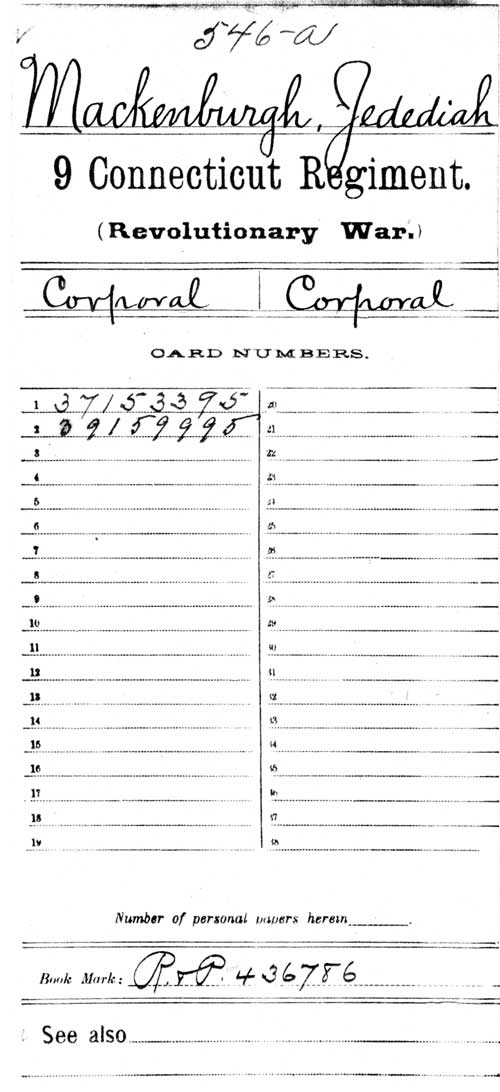 546-a
Mackenburgh, Jedediah
9 Connecticut Regiment.
(Revolutionary War.)
Corporal Corporal
CARD NUMBERS.
1 37153395 20
2 39159995 21
3 22
4 23
5 24
6 25
7 26
8 27
9 28
10 29
11 30
12 31
13 32
14 33
15 34
16 35
17 36
18 37
19 38
Number of personal papers herein
Book Mark: R. & P. 436786
See also